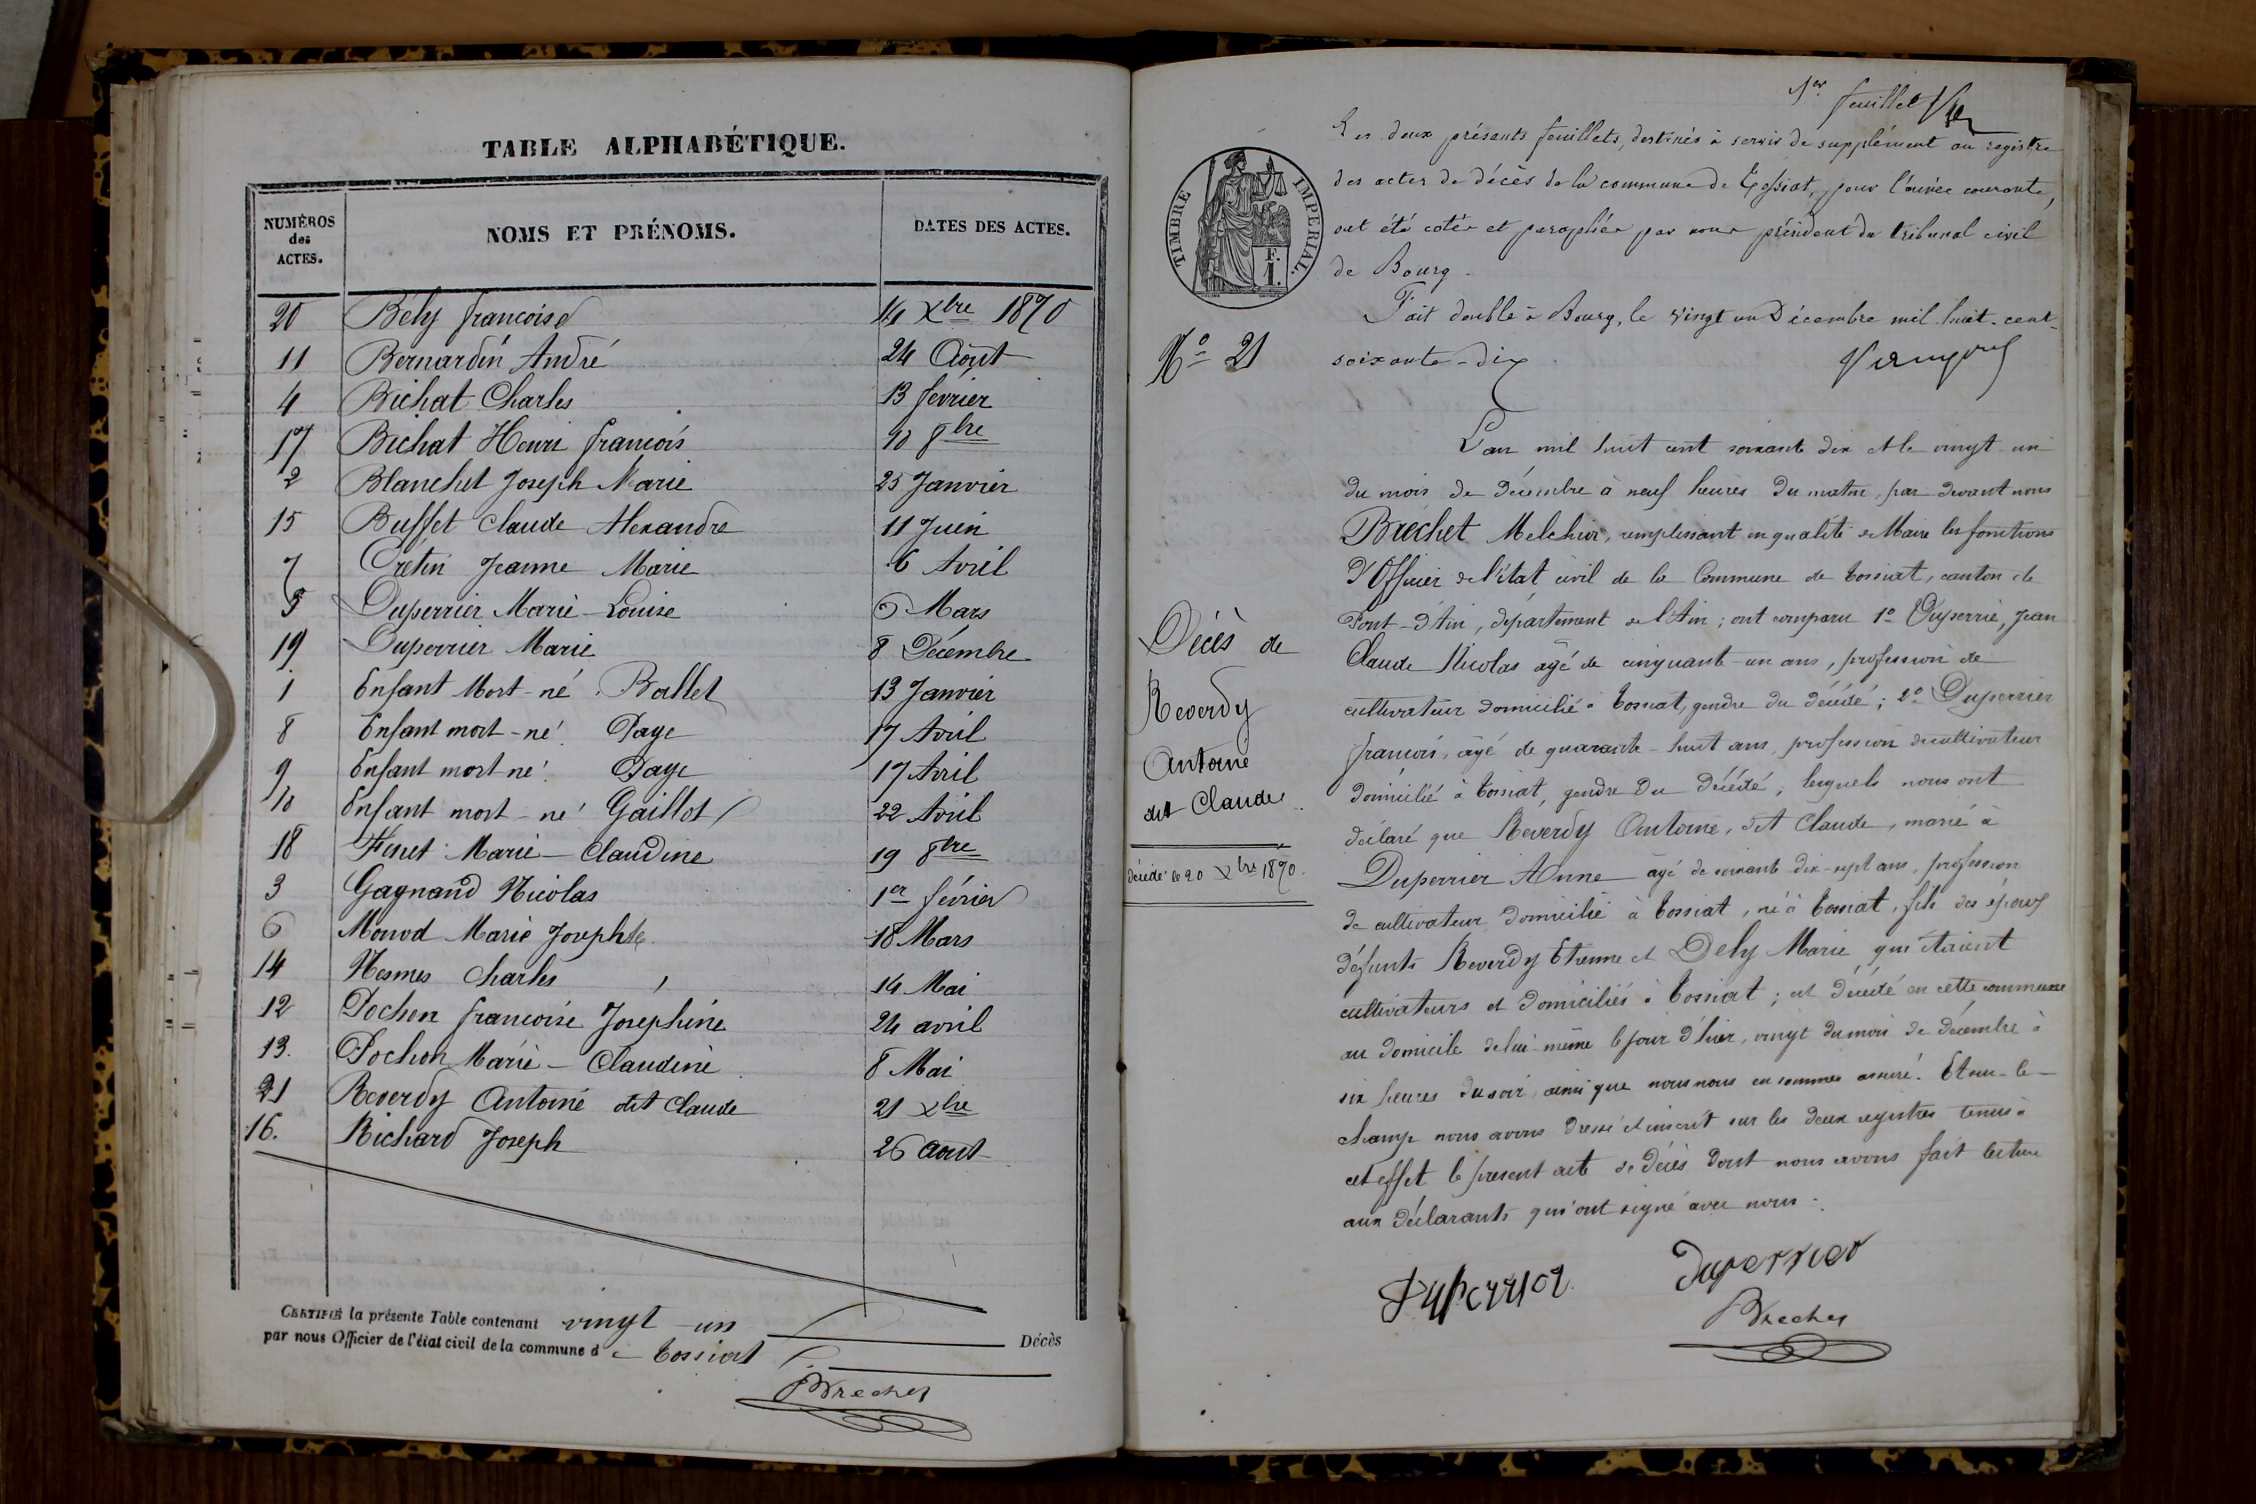 TABLE ALPHABÉTIQUE.
NUMÉROS des ACTES. NOMS ET PRÉNOMS. DATES DES ACTES.
20 Bély françoise 14 Xbre 1870
11 Bernardin André 24 Août
4 Bichat Charles 13 février
17 Bichat Henri françois 10 8bre
2 Blanchet Joseph Marie 25 Janvier
15 Buffet Claude Alexandre 11 Juin
7 Crétin Jeanne Marie 6 Avril
5 Duperrier Marie-Louise 6 Mars
19 Duperrier Marie 8 Décembre
1 Enfant Mort-né. Ballet 13 Janvier
8 Enfant mort-né. Page 17 Avril
9 Enfant mort né. Page 17 Avril
10 Enfant mort-né Gaillot 22 Avril
18 Marie-Claudine 19 8bre
3 Gagnand Nicolas 1er février
6 Monod Marie Josephte 18 Mars
14 Nesmes Charles 14 Mai
12 Pochon françoise Joséphine 24 avril
13. Pochon Marie-Claudine 8 Mai
21 Reverdy Antoine dit Claude 21 Xbre
16. Richard Joseph 26 Aout
CERTIFIÉ la présente Table contenant vingt-un Décès
par nous Officier de l'état civil de la commune de Tossiat
Brechet
1er feuillet
Les deux présents feuillets, destinés à servir de supplément au registre
des actes de décès de la commune de Tossiat, pour l'année courante,
ont été cotés et paraphés par nous président du tribunal civil
de Bourg.
TIMBRE IMPERIAL.
F. 1.
Fait double à Bourg, le vingt un Décembre mil huit-cent-
soixante-dix
No 21
L'an mil huit cent soixante dix et le vingt-un
du mois de décembre à neuf heures du matin, par devant nous
Bréchet Melchior, remplissant en qualité de Maire les fonctions
d'Officier de l'état civil de la Commune de Tossiat, canton de
Pont-d'Ain, département de l'Ain; ont comparu 1o Duperrié, Jean
Claude Nicolas âgé de cinquante-un ans, profession de
cultivateur domicilié à Tossiat, gendre du décédé; 2o Duperrier
françois, âgé de quarante-huit ans, profession de cultivateur
domicilié à Tossiat, gendre du décédé, lesquels nous ont
déclaré que Reverdy Antoine, dit Claude, marié à
Duperrier Anne âgé de soixante dix-sept ans, profession
de cultivateur domicilié à Tossiat, né à Tossiat, fils des époux
défunts Reverdy Etienne et Dely Marie qui étaient
cultivateurs et domiciliés à Tossiat; est décédé en cette commune
au domicile de lui-même le jour d'hier, vingt du mois de décembre à
six heures du soir, ainsi que nous nous en sommes assuré. Et sur-le-
champ nous avons dressé et inscrit sur les deux registres tenus à
cet effet le présent acte de décès dont nous avons fait lecture
aux déclarants qui ont signé avec nous.
Décès de
Reverdy
Antoine
dit Claude.
Décédé le 20 Xbre 1870.
Duperrier Duperrier
Brechet